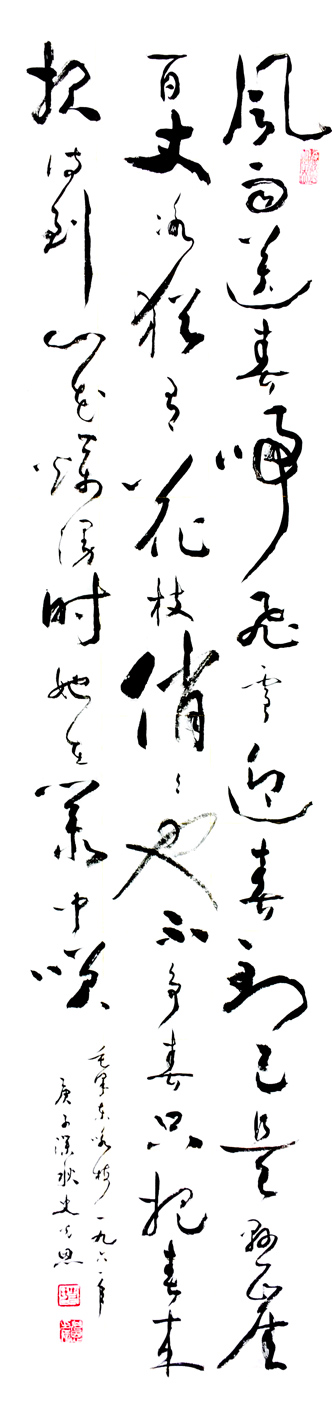 風雨送春歸飛雪迎春到已是懸崖
百丈冰猶有花枝俏〻也不争春只把春来
报待到山花爛漫时她在叢中咲
毛泽东咏梅一九六一年
庚子深秋史